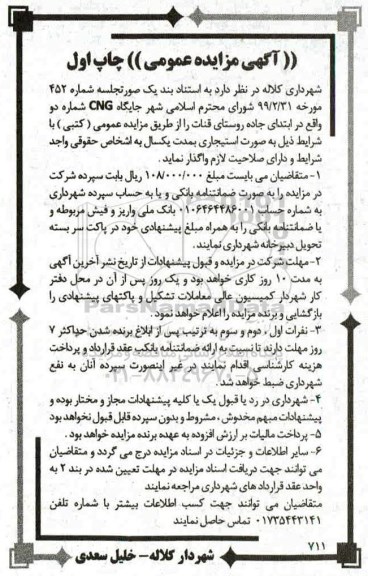 (( آگهی مزایده عمومی )) چاپ اول
شهرداری کلاله در نظر دارد به استناد بند یک صورتجلسه شماره ۴۵۲
مورخه ۹۹/۲/۳۱ شورای محترم اسلامی شهر جایگاه CNG شماره دو
واقع در ابتدای جاده روستای قنات را از طریق مزایده عمومی ( کتبی ) با
شرایط ذیل به صورت استیجاری بمدت یکسال به اشخاص حقوقی واجد
شرایط و دارای صلاحیت لازم واگذار نماید .
۱- متقاضیان می بایست مبلغ ۱۰۸/۰۰۰/۰۰۰ ریال بابت سپرده شرکت
در مزایده را به صورت ضمانتنامه بانکی و یا به حساب سپرده شهرداری
به شماره حساب بانک ملی واریز و فیش مربوطه و
یا ضمانتنامه بانکی را به همراه مبلغ پیشنهادی خود در پاکت سر بسته
تحویل دبیرخانه شهرداری نمایند .
۲- مهلت شرکت در مزایده و قبول پیشنهادات از تاریخ نشر آخرین آگهی
به مدت ۱۰ روز کاری خواهد بود و یک روز پس از آن در محل دفتر
کار شهردار کمیسیون عالی معاملات تشکیل و پاکتهای پیشنهادی را
بازگشایی و برنده مزایده را اعلام خواهد نمود .
۳- نفرات اول ، دوم و سوم به ترتیب پس از ابلاغ برنده شدن حداکثر ۷
روز مهلت دارند تا نسبت به ارائه ضمانتنامه بانکی عقد قرارداد و پرداخت
هزینه کارشناسی اقدام نمایند در غیر اینصورت سپرده آنان به نفع
شهرداری ضبط خواهد شد .
۴- شهرداری در رد یا قبول یک یا کلیه پیشنهادات مجاز و مختار بوده و
پیشنهادات مبهم مخدوش ، مشروط و بدون سپرده قابل قبول نخواهد بود
۵- پرداخت مالیات بر ارزش افزوده به عهده برنده مزایده خواهد بود .
۶- سایر اطلاعات و جزئیات در اسناد مزایده درج می گردد و متقاضیان
می توانند جهت دریافت اسناد مزایده در مهلت تعیین شده در بند ۲ به
واحد عقد قرارداد های شهرداری مراجعه نمایند
متقاضیان می توانند جهت کسب اطلاعات بیشتر با شماره تلفن
۰۱۷۳۵۴۴۳۱۴۱ تماس حاصل نمایند
۷۱۱
شهردار کلاله - خلیل سعدی